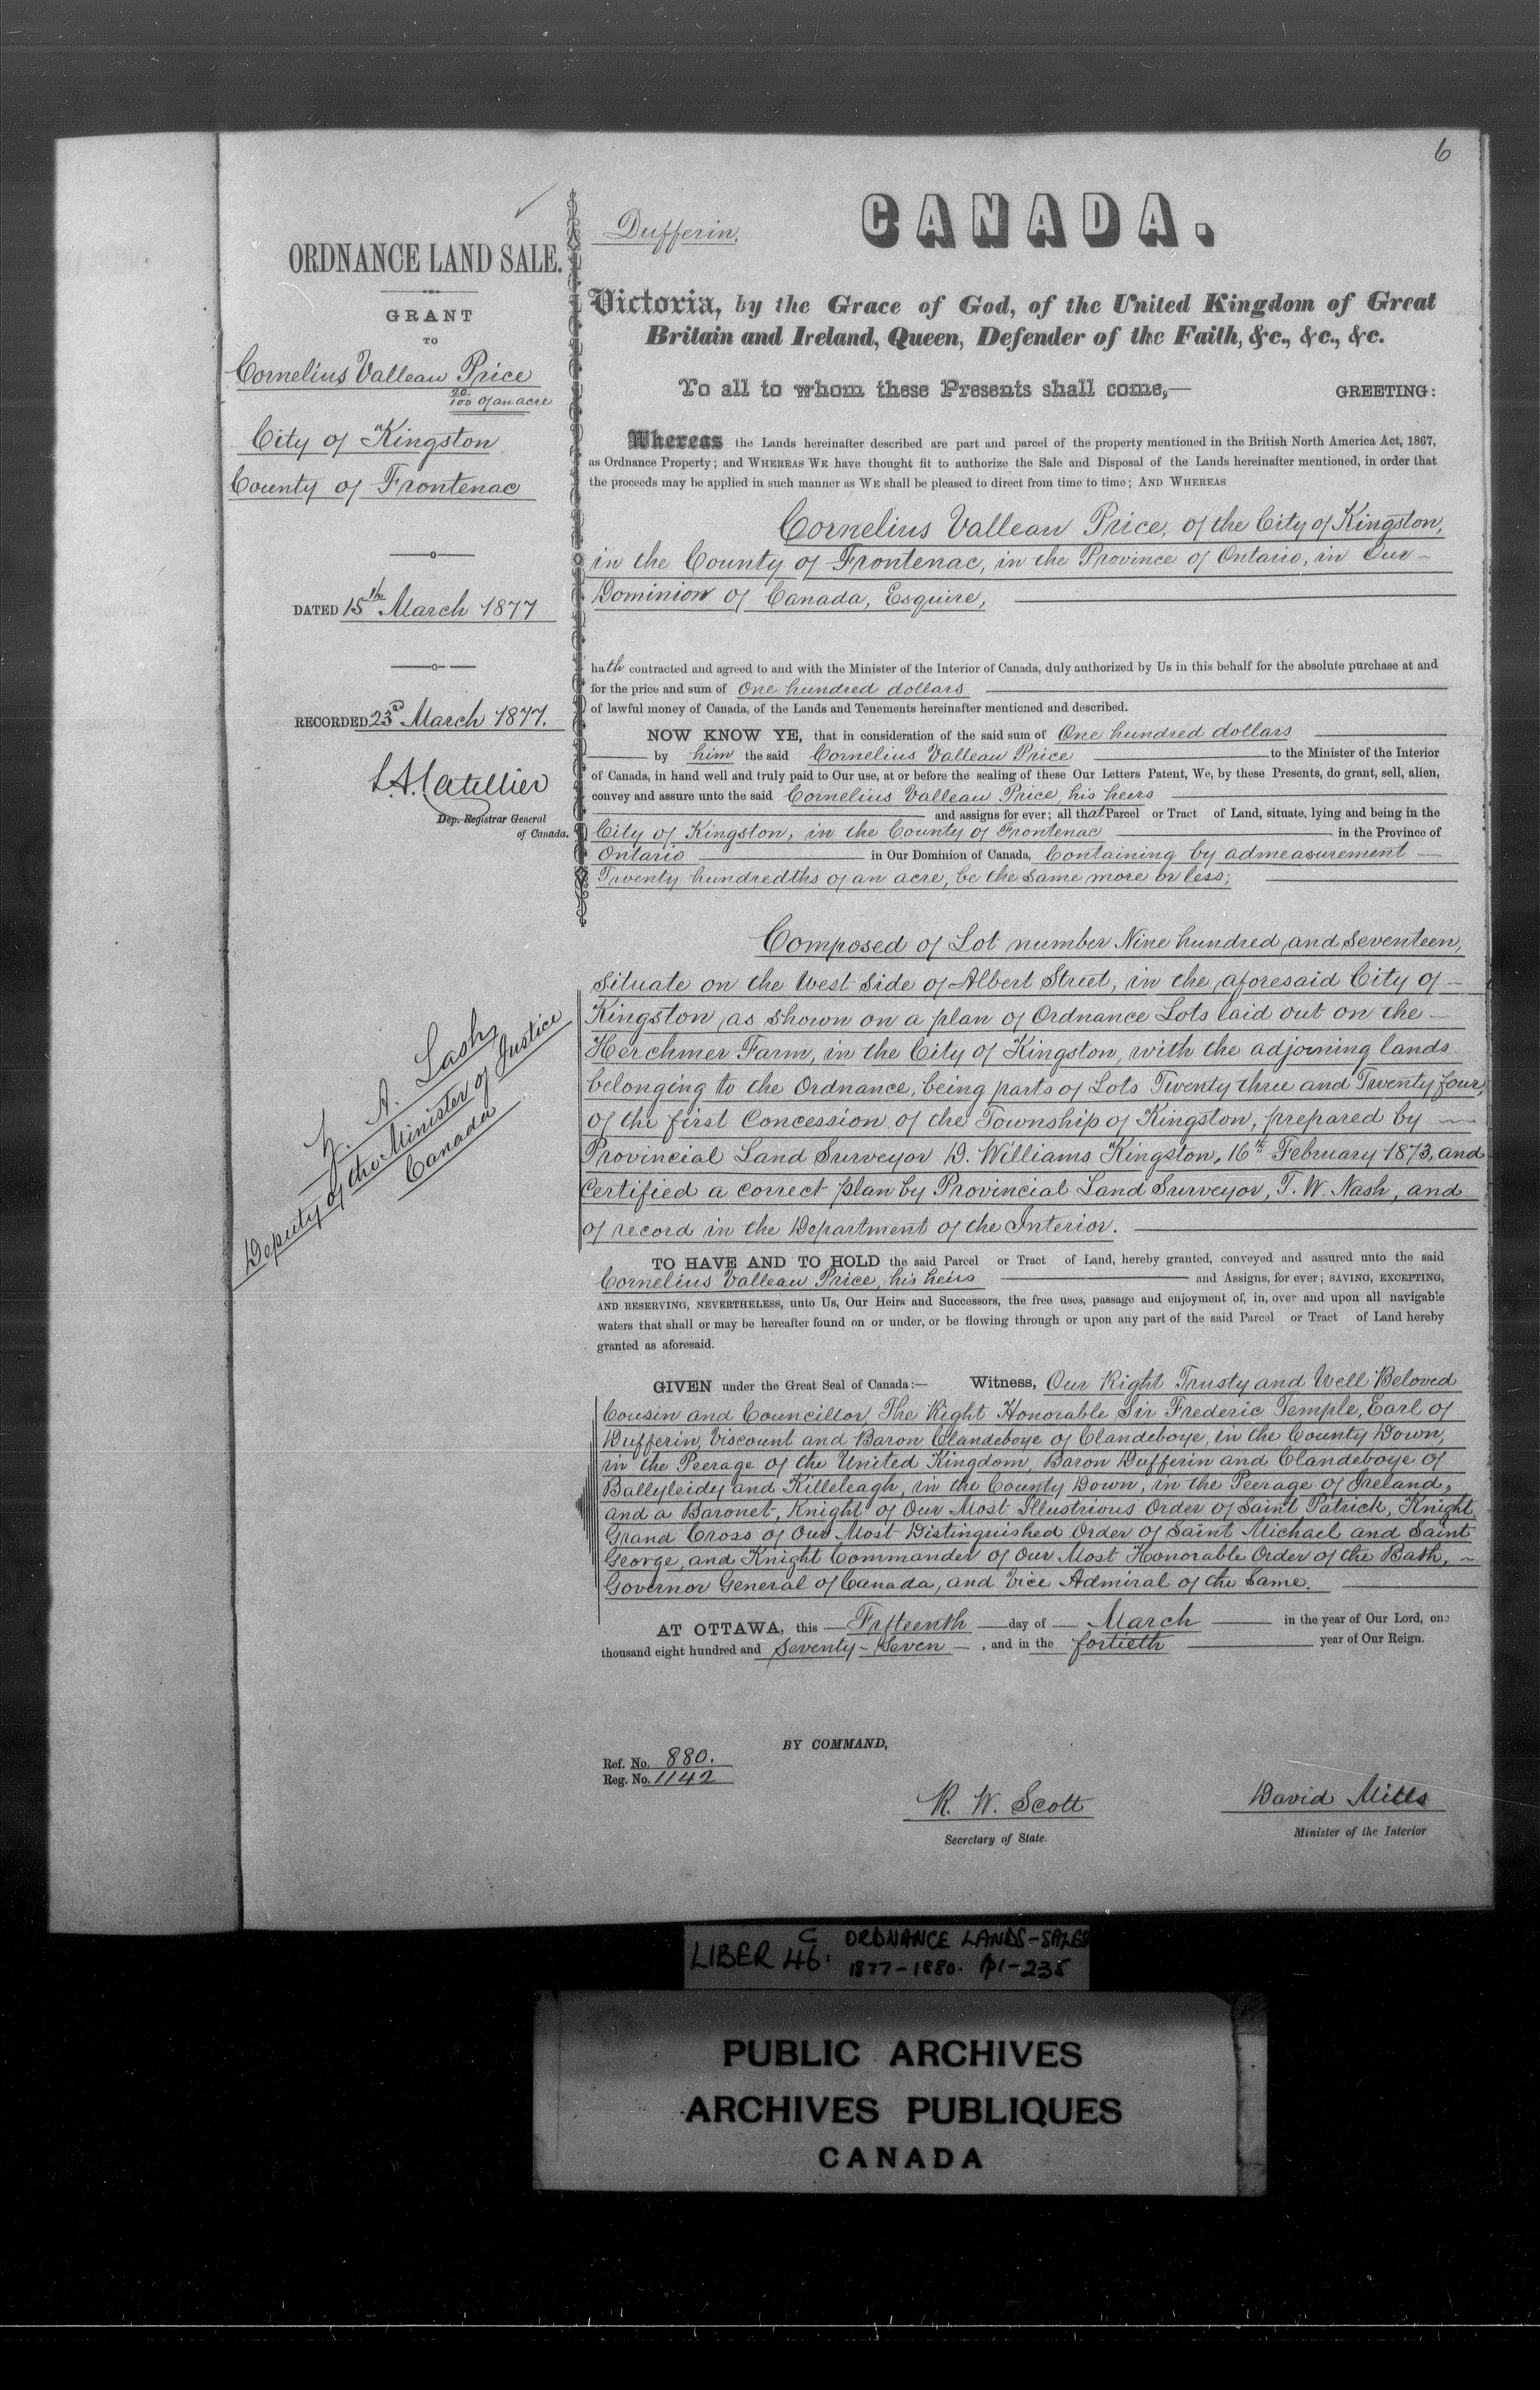 6
ORDNANCE LAND SALE.
GRANT
TO
Cornelius Valleau Price
20/100 of an acre
City of Kingston
County of Frontenac
DATED 15th March 1877
RECORDED 23d March 1877.
Dep. Registrar General
of Canada.
Z. A. Lash
Deputy of the Minister of Justice
Canada
Dufferin.
CANADA.
Victoria, by the Grace of God, of the United Kingdom of Great
Britain and Ireland, Queen, Defender of the Faith, &c., &c., &c.
To all to whom these Presents shall come,— GREETING:
Whereas the Lands hereinafter described are part and parcel of the property mentioned in the British North America Act, 1867,
as Ordnance Property; and WHEREAS WE have thought fit to authorize the Sale and Disposal of the Lands hereinafter mentioned, in order that
the proceeds may be applied in such manner as WE shall be pleased to direct from time to time; AND WHEREAS
Cornelius Valleau Price, of the City of Kingston,
in the County of Frontenac, in the Province of Ontario, in Our
Dominion of Canada, Esquire,
hath contracted and agreed to and with the Minister of the Interior of Canada, duly authorized by Us in this behalf for the absolute purchase at and
for the price and sum of One hundred dollars
of lawful money of Canada, of the Lands and Tenements hereinafter mentioned and described.
NOW KNOW YE, that in consideration of the said sum of One hundred dollars
by him the said Cornelius Valleau Price to the Minister of the Interior
of Canada, in hand well and truly paid to Our use, at or before the sealing of these Our Letters Patent, We, by these Presents, do grant, sell, alien,
convey and assure unto the said Cornelius Valleau Price, his heirs
and assigns for ever; all that Parcel or Tract of Land, situate, lying and being in the
City of Kingston, in the County of Frontenac in the Province of
Ontario in Our Dominion of Canada, Containing by admeasurement
Twenty hundredths of an acre, be the same more or less;
Composed of Lot number Nine hundred and seventeen,
situate on the West side of Albert Street, in the aforesaid City of
Kingston, as shown on a plan of Ordnance Lots laid out on the
Herchmer Farm, in the City of Kingston, with the adjoining lands
belonging to the Ordnance, being parts of Lots Twenty three and Twenty four,
of the first Concession of the Township of Kingston, prepared by
Provincial Land Surveyor D. Williams Kingston, 16th February 1873, and
certified a correct plan by Provincial Land Surveyor, T. W. Nash, and
of record in the Department of the Interior.
TO HAVE AND TO HOLD the said Parcel or Tract of Land, hereby granted, conveyed and assured unto the said
Cornelius Valleau Price, his heirs and Assigns, for ever; SAVING, EXCEPTING,
AND RESERVING, NEVERTHELESS, unto Us, Our Heirs and Successors, the free uses, passage and enjoyment of, in, over and upon all navigable
waters that shall or may be hereafter found on or under, or be flowing through or upon any part of the said Parcel or Tract of Land hereby
granted as aforesaid.
GIVEN under the Great Seal of Canada:— Witness, Our Right Trusty and Well Beloved
Cousin and Councillor, The Right Honorable Sir Frederic Temple, Earl of
Dufferin, Viscount and Baron Clandeboye of Clandeboye, in the County Down,
in the Peerage of the United Kingdom, Baron Dufferin and Clandeboye of
Ballyleidy and Killeleagh, in the County Down, in the Peerage of Ireland,
and a Baronet, Knight of Our Most Illustrious Order of Saint Patrick, Knight
Grand Cross of Our Most Distinguished Order of Saint Michael and Saint
George, and Knight Commander of Our Most Honorable Order of the Bath,
Governor General of Canada, and Vice Admiral of the same.
AT OTTAWA, this Fifteenth day of March in the year of Our Lord, one
thousand eight hundred and seventy-seven, and in the fortieth year of Our Reign.
BY COMMAND,
Ref. No. 880.
Reg. No. 1142
R. W. Scott
Secretary of State.
David Mills
Minister of the Interior
LIBER 46: C ORDNANCE LANDS-SALES
1877-1880. p1-235
PUBLIC ARCHIVES
ARCHIVES PUBLIQUES
CANADA